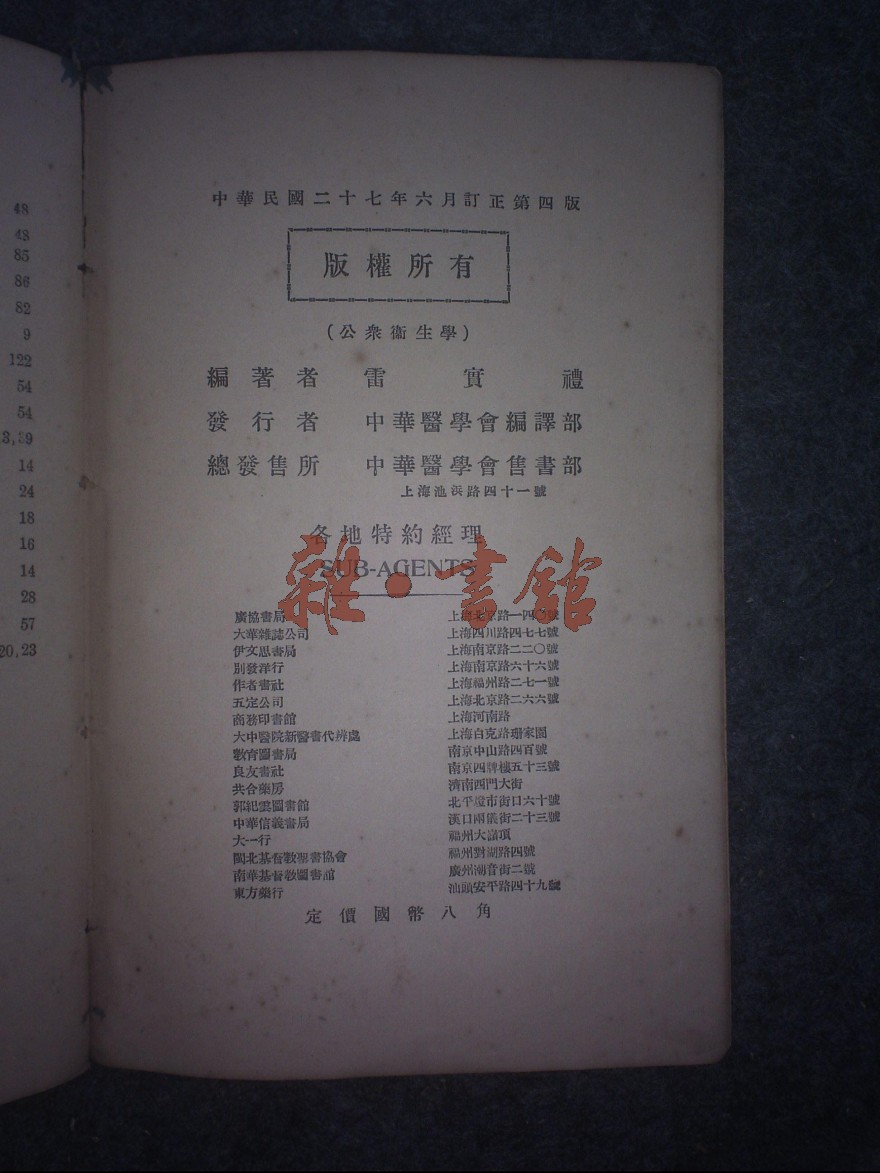 48
48
85
86
82
9
122
54
54
3,39
14
24
18
16
14
28
57
20,23
中華民國二十七年六月訂正第四版
版權所有
(公衆衞生學)
編著者 雷實禮
發行者 中華醫學會編譯部
總發售所 中華醫學會售書部
上海池浜路四十一號
各地特約經理
SUB-AGENTS
雜·書館
廣協書局 上海北京路一四〇號
大華雜誌公司 上海四川路四七七號
伊文思書局 上海南京路二二〇號
別發洋行 上海南京路六十六號
作者書社 上海福州路二七一號
五定公司 上海北京路二六六號
商務印書館 上海河南路
大中醫院新醫書代辨處 上海白克路珊家園
教育圖書局 南京中山路四百號
良友書社 南京四牌樓五十三號
共合藥房 濟南西門大街
郭紀雲圖書館 北平燈市街口六十號
中華信義書局 漢口兩儀街二十三號
大一行 福州大譪頂
閩北基督教聖書協會 福州對湖路四號
南華基督教圖書館 廣州潮音街二號
東方藥行 汕頭安平路四十九號
定價國幣八角